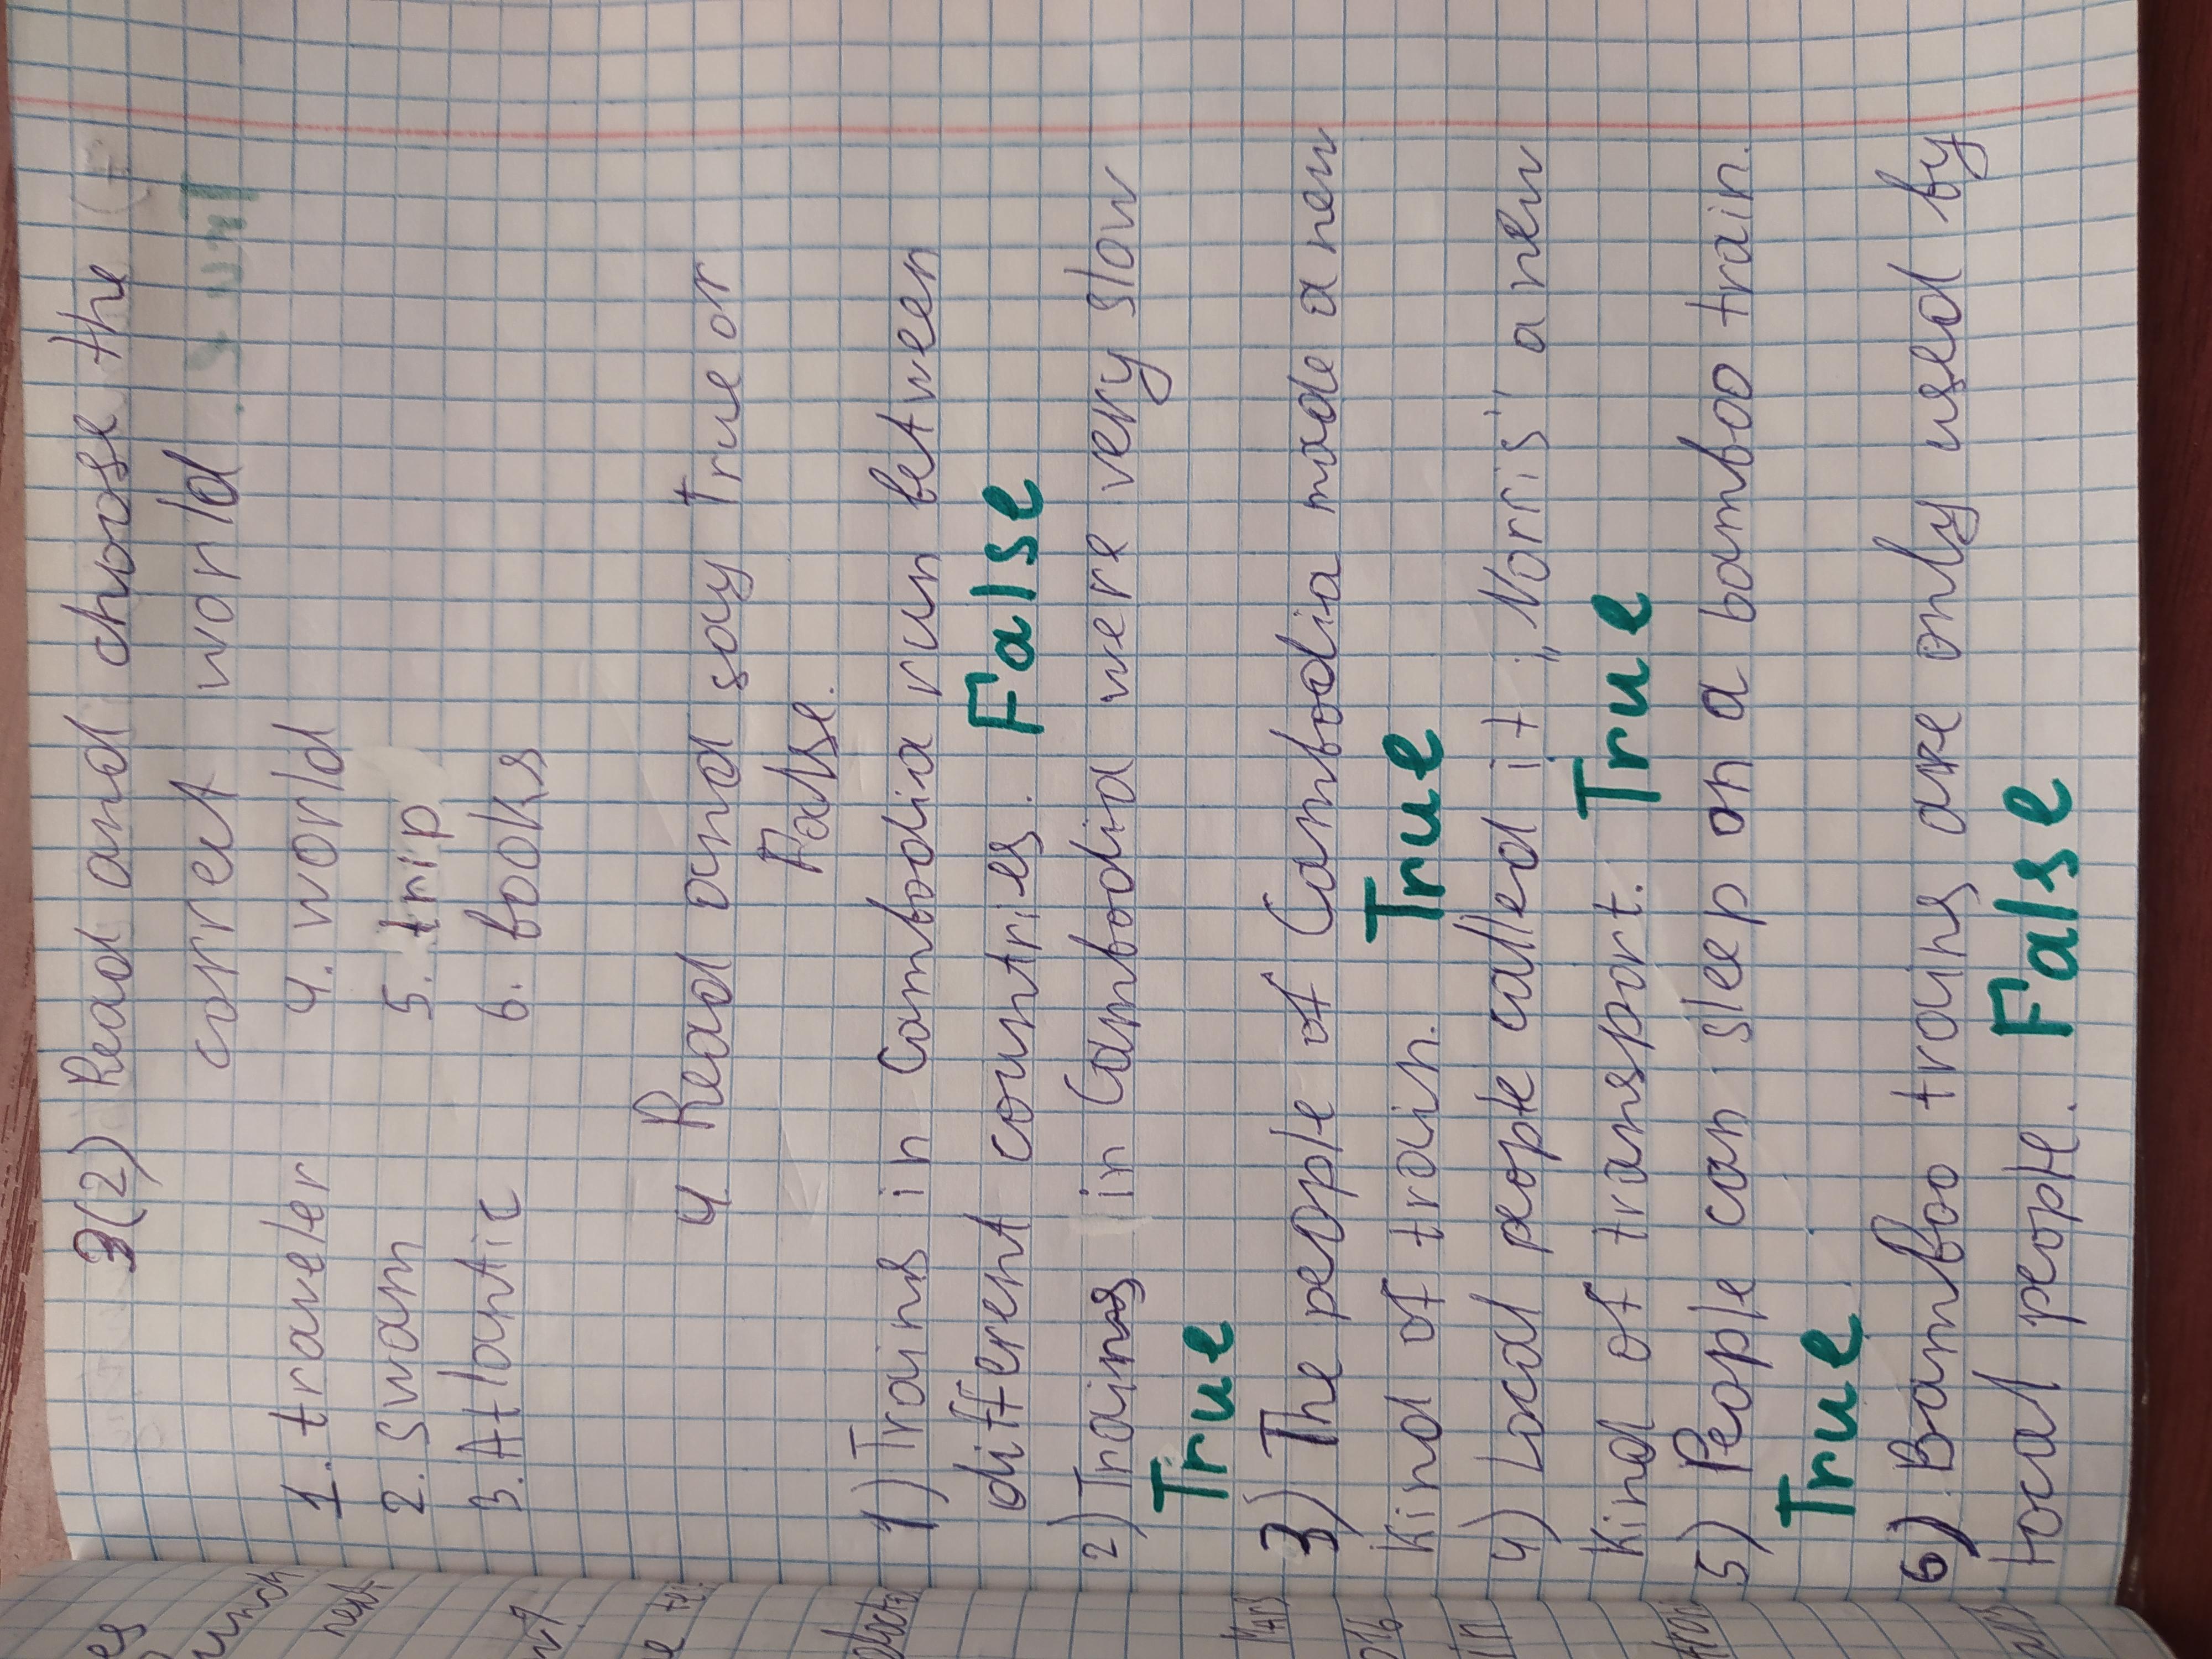 3(2) Read and choose the
correct world
1. traveler 4. world
2. swam 5. trip
3. Atlantic 6. books
4 Read and say True or
False.
1) Trains in Cambodia run between
different countries. False
2) Trains in Cambodia were very slow
True
3) The people of Cambodia made a new
kind of train. True
4) Local people called it „Norris" a new
kind of transport. True
5) People can sleep on a bamboo train.
True
6) Bamboo trains are only used by
local people. False